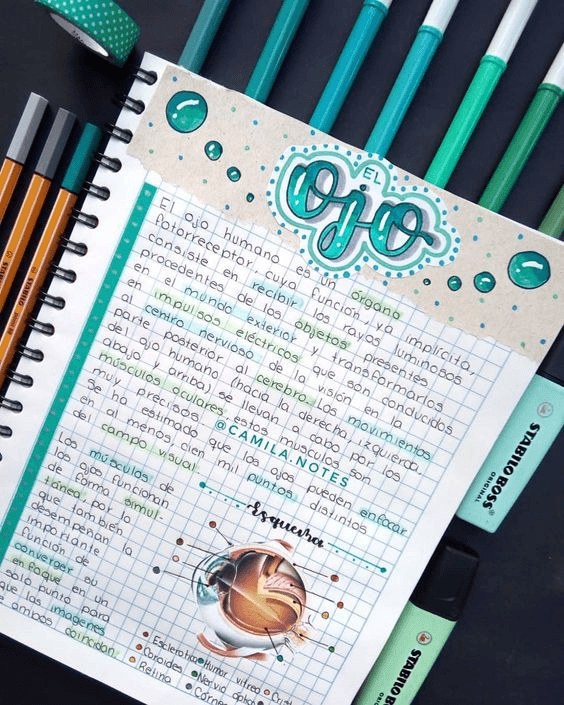 EL
Ojo
El ojo humano es un órgano
fotorreceptor, cuya función, ya implícita,
consiste en recibir los rayos luminosos
procedentes de los objetos presentes
en el mundo exterior y transformarlos
en impulsos eléctricos que son conducidos
al centro nervioso de la visión en la
parte posterior al cerebro. los movimientos
del ojo humano (hacia la derecha, izquierda,
abajo y arriba) se llevan a cabo por los
músculos oculares, estos músculos son
muy precisos,
Se ha estimado que los ojos pueden enfocar
en al menos cien mil puntos distintos
del campo visual.
@CAMILA.NOTES
Los músculos de
los ojos funcionan
de forma simul-
tánea, por lo
que también
desempeñan la
importante
función de
converger su
enfoque en un
solo punto para
que las imágenes
ambos coincidan.
Esquema
Esclerótica Humor vítreo Crist
Coroides Nervio óptic
Retina Córne
STABILO BOSS
ORIGINAL
STABILO BOSS
ORIGINAL